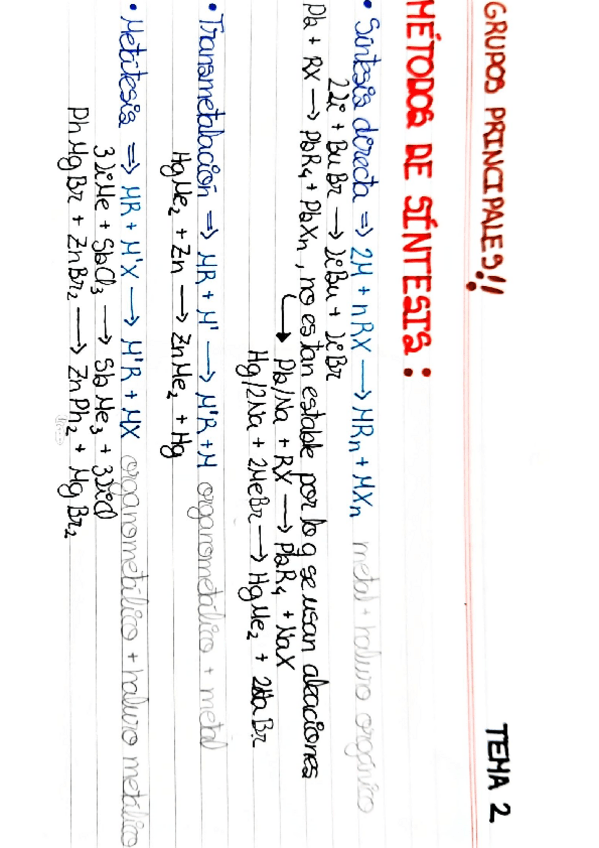 GRUPOS PRINCIPALES!! TEMA 2
MÉTODOS DE SÍNTESIS:
• Síntesis directa => 2M + nRX → MRn + MXn metal + haluro orgánico
2Li + BuBr → LiBu + LiBr
Pb + RX → PbR4 + PbXn, no es tan estable por lo q se usan aleaciones
↳ Pb/Na + RX → PbR4 + NaX
Hg/2Na + 2MeBr → HgMe2 + 2NaBr
• Transmetalación => MR + M' → M'R + M organometálico + metal
HgMe2 + Zn → ZnMe2 + Hg
• Metátesis => MR + M'X → M'R + MX organometálico + haluro metálico
3LiMe + SbCl3 → SbMe3 + 3LiCl
PhMgBr + ZnBr2 → ZnPh2 + MgBr2